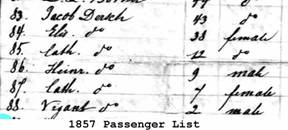 83. Jacob Dersch 43 do
84. Elis. do 38 female
85. Cath. do 12 do
86. Heinr. do 9 male
87. Cath. do 7 female
88. do 2 male
1857 Passenger List